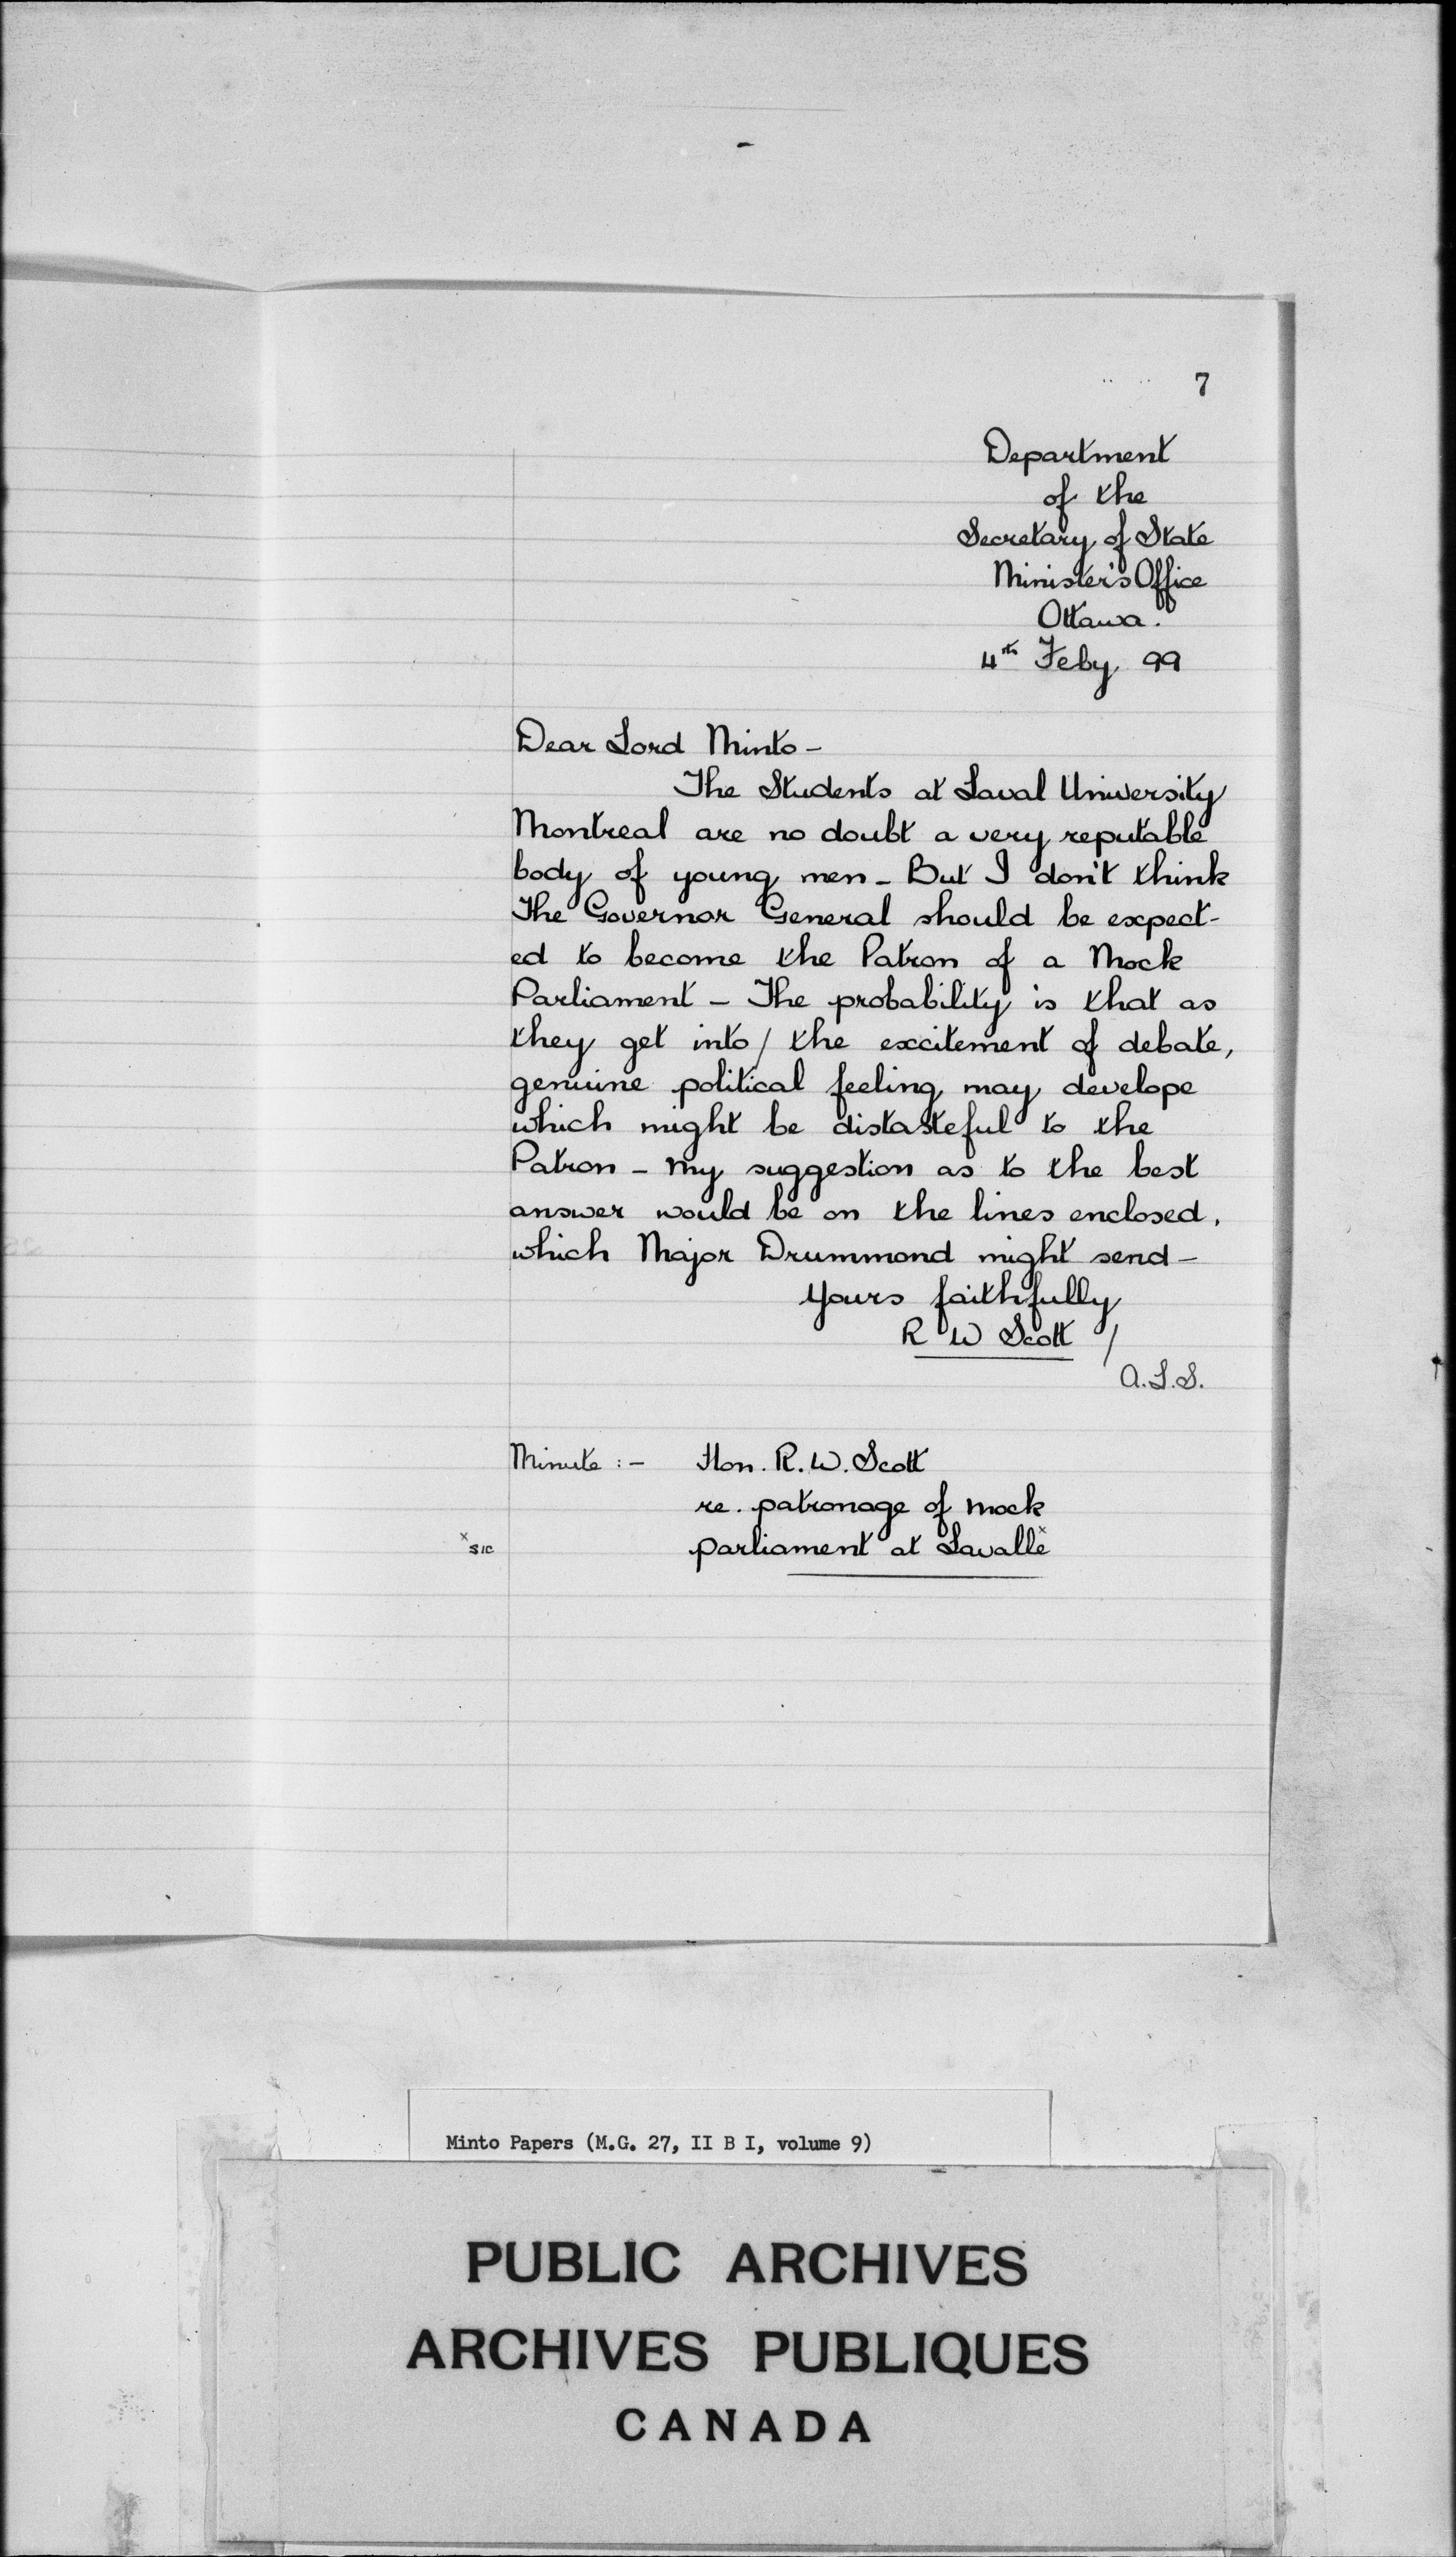 7
Department
of the
Secretary of State
Minister's Office
Ottawa.
4th Feby 99
Dear Lord Minto -
The Students at Laval University
Montreal are no doubt a very reputable
body of young men - But I don't think
the Governor General should be expect-
ed to become the Patron of a Mock
Parliament - The probability is that as
they get into / the excitement of debate,
genuine political feeling may develope
which might be distasteful to the
Patron - My suggestion as to the best
answer would be on the lines enclosed,
which Major Drummond might send -
Yours faithfully
R W Scott /
A.L.S.
Minute :- Hon. R. W. Scott
re. patronage of mock
x sic parliament at Lavalle x
Minto Papers (M.G. 27, II B I, volume 9)
PUBLIC ARCHIVES
ARCHIVES PUBLIQUES
CANADA